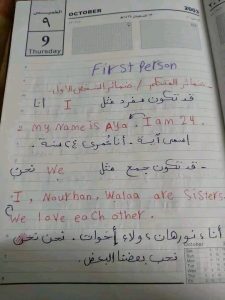 الخميس
OCTOBER
2003
٩
9
Thursday
First Person
ضمائر المتكلم / ضمائر الشخص الأول
قد تكون مفرد مثل I أنا
my name is Aya. I am 24.
اسمى آية. أنا عمرى ٢٤ سنة.
- قد تكون جمع مثل We نحن
I, Nourhan, Walaa are sisters
We love each other.
أنا، نورهان، ولاء أخوات. نحن
نحب بعضنا البعض.
October